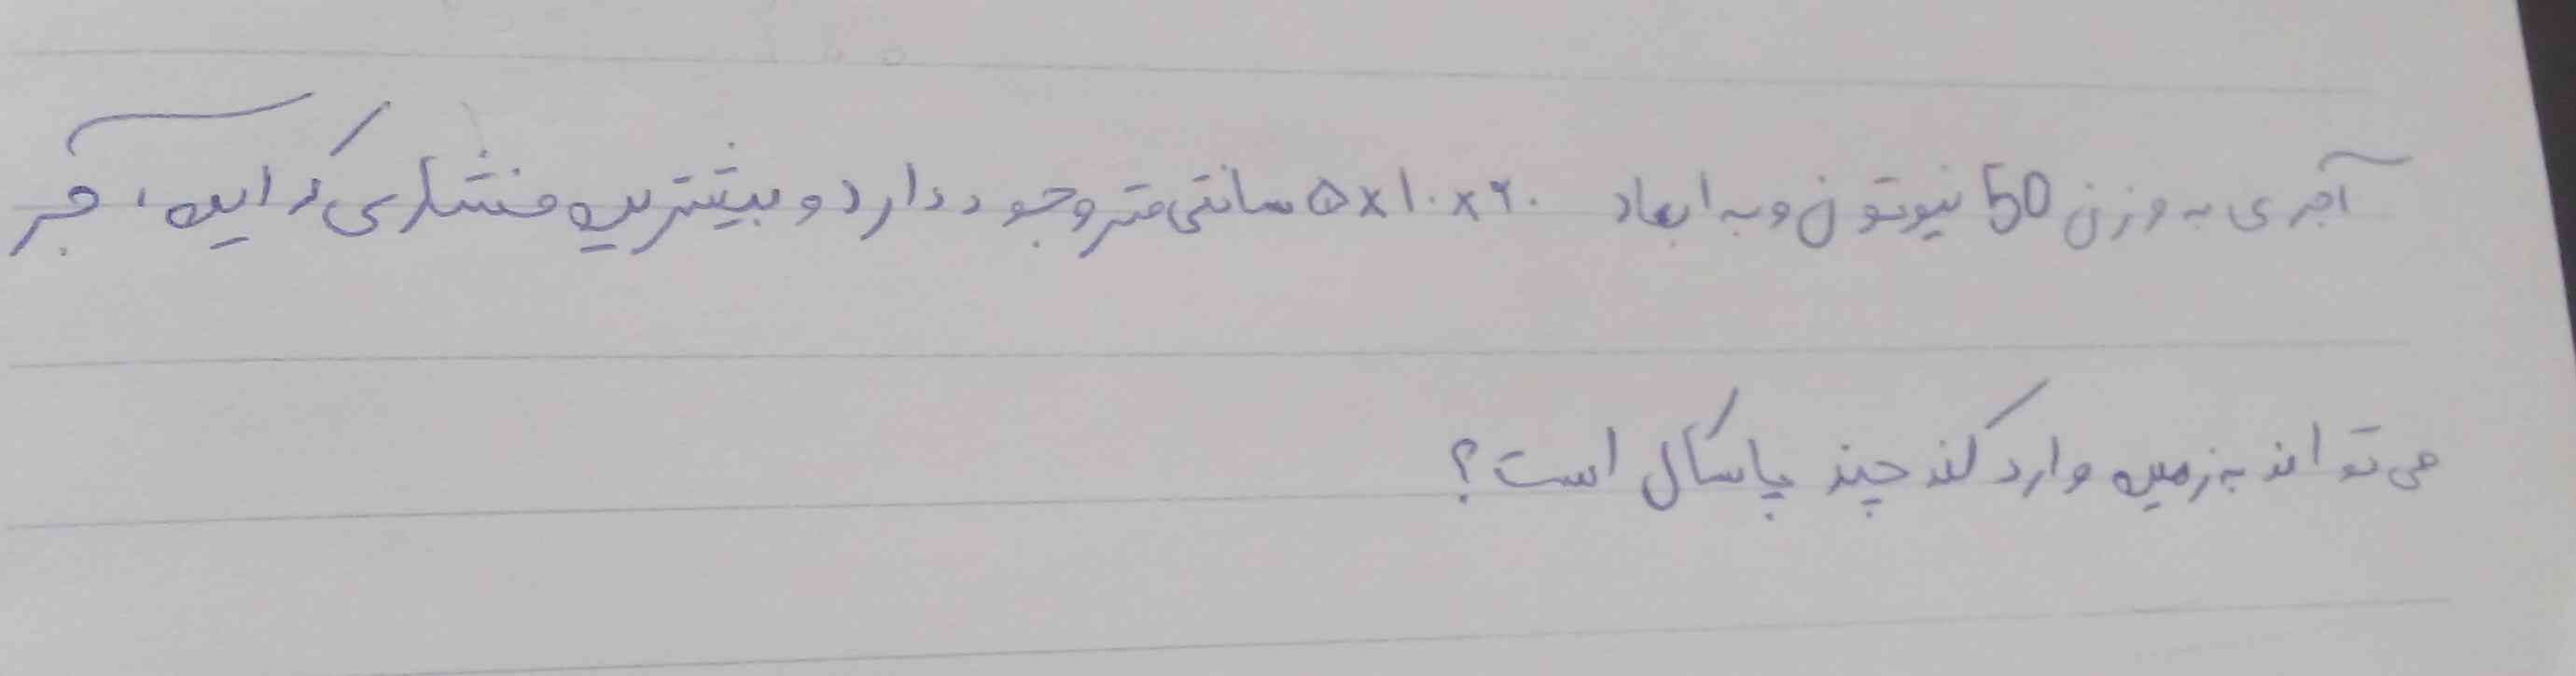 آجری به وزن 50 نیوتون و به ابعاد ۵×۱۰×۲۰ سانتی متر وجود دارد و بیشترین فشاری که این آجر
می تواند به زمین وارد کند چند پاسکال است؟